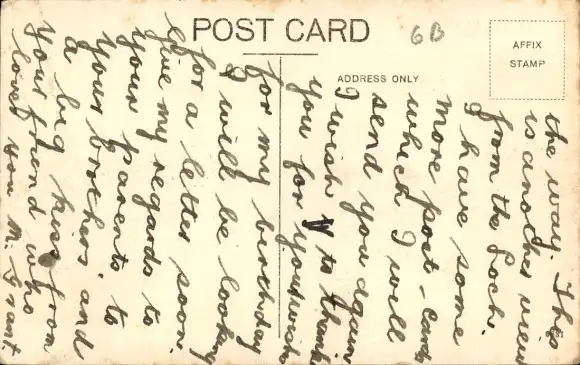 POST CARD
6B
AFFIX
STAMP
ADDRESS ONLY
the way. This
is another view
from the Loch.
I have some
more post-cards
which I will
send you again
I wish to thank
you for your wish
for my birthday
I will be looking
for a letter soon.
give my regards to
your parents to
your brothers, and
a big kiss from
your friend who
loves you M. Grant.